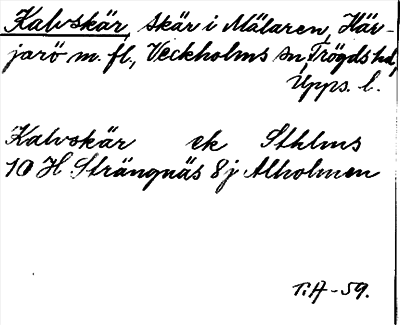 Kalvskär, skär i Mälaren, Här-
jarö m. fl., Veckholms sn, Trögds hd,
Upps. l.
Kalvskär ek Sthlms
10 H Strängnäs 8 j Alholmen
T.A -59.